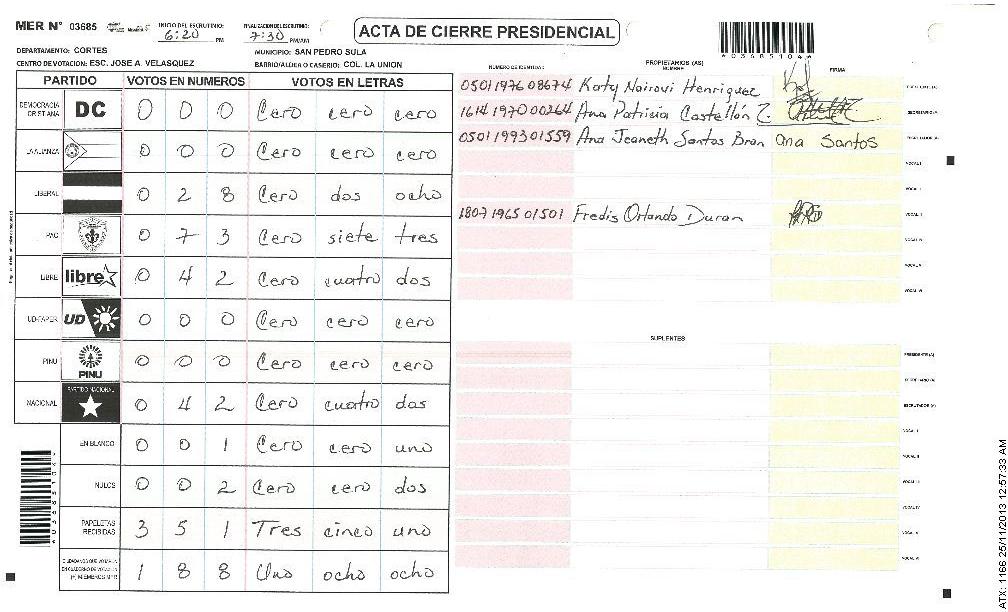 MER N° 03685
INICIO DEL ESCRUTINIO: 6:20 PM
FINALIZACION DEL ESCRUTINIO: 7:30 PM/AM
ACTA DE CIERRE PRESIDENCIAL
DEPARTAMENTO: CORTES
MUNICIPIO: SAN PEDRO SULA
CENTRO DE VOTACION: ESC. JOSE A. VELASQUEZ
BARRIO/ALDEA O CASERIO: COL. LA UNION
PARTIDO VOTOS EN NUMEROS VOTOS EN LETRAS
DEMOCRACIA CRISTIANA DC 0 0 0 Cero cero cero
LA ALIANZA 0 0 0 Cero cero cero
LIBERAL 0 2 8 Cero dos ocho
PAC 0 7 3 Cero siete tres
LIBRE libre 0 4 2 Cero cuatro dos
UD-FAPER UD 0 0 0 Cero cero cero
PINU PINU 0 0 0 Cero cero cero
NACIONAL PARTIDO NACIONAL 0 4 2 Cero cuatro dos
EN BLANCO 0 0 1 Cero cero uno
NULOS 0 0 2 Cero cero dos
PAPELETAS RECIBIDAS 3 5 1 Tres cinco uno
CIUDADANOS QUE VOTARON EN CUADERNO DE VOTACION (+) MIEMBROS MER 1 8 8 Uno ocho ocho
NUMERO DE IDENTIDAD PROPIETARIOS (AS) NOMBRE FIRMA
0501197608674 Katy Nairovi Henriquez
1614197000264 Ana Patricia Castellón Z. SECRETARIO(A)
0501199301559 Ana Jeaneth Santos Bron Ana Santos ESCRUTADOR(A)
VOCAL I
1807196501501 Fredis Orlando Duran
SUPLENTES
PRESIDENTE (A)
SECRETARIO (A)
ESCRUTADOR (A)
VOCAL I
VOCAL II
VOCAL III
VOCAL IV
VOCAL V
VOCAL VI
ATX: 1166 25/11/2013 12:57:33 AM